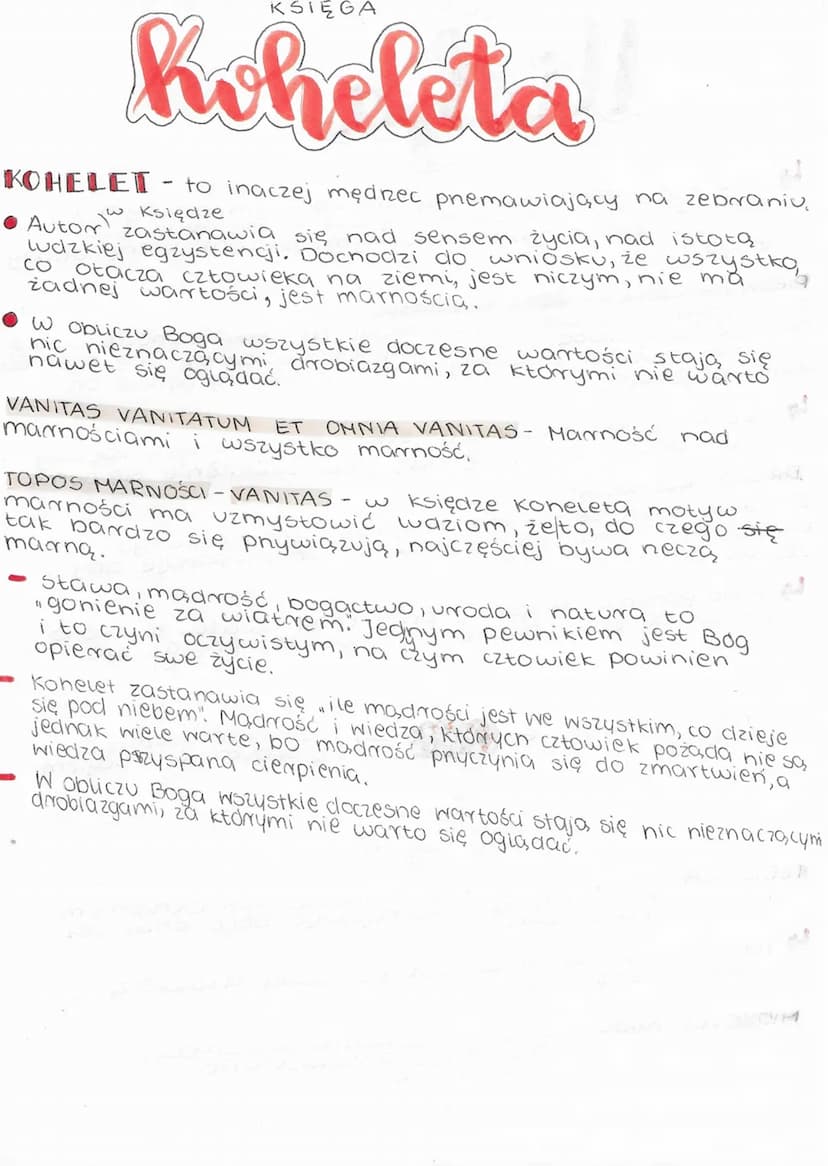 KSIĘGA
Koheleta
KOHELET - to inaczej mędrzec przemawiający na zebraniu.
w Księdze
• Autor zastanawia się nad sensem życia, nad istotą
ludzkiej egzystencji. Dochodzi do wniosku, że wszystko,
co otacza człowieka na ziemi, jest niczym, nie ma
żadnej wartości, jest marnością.
• W obliczu Boga wszystkie doczesne wartości stają się
nic nieznaczącymi drobiazgami, za którymi nie warto
nawet się oglądać.
VANITAS VANITATUM ET OMNIA VANITAS - Marność nad
marnościami i wszystko marność.
TOPOS MARNOŚCI - VANITAS - w księdze Koheleta motyw
marności ma uzmysłowić ludziom, że to, do czego się
tak bardzo się przywiązują, najczęściej bywa rzeczą
marną.
- Sława, mądrość, bogactwo, uroda i natura to
"gonienie za wiatrem". Jedynym pewnikiem jest Bóg
i to czyni oczywistym, na czym człowiek powinien
opierać swe życie.
- Kohelet zastanawia się „ile mądrości jest we wszystkim, co dzieje
się pod niebem". Mądrość i wiedza, których człowiek pożąda nie są
jednak wiele warte, bo mądrość przyczynia się do zmartwień, a
wiedza przyspana cierpienia.
- W obliczu Boga wszystkie doczesne wartości stają się nic nieznaczącymi
drobiazgami, za którymi nie warto się oglądać.